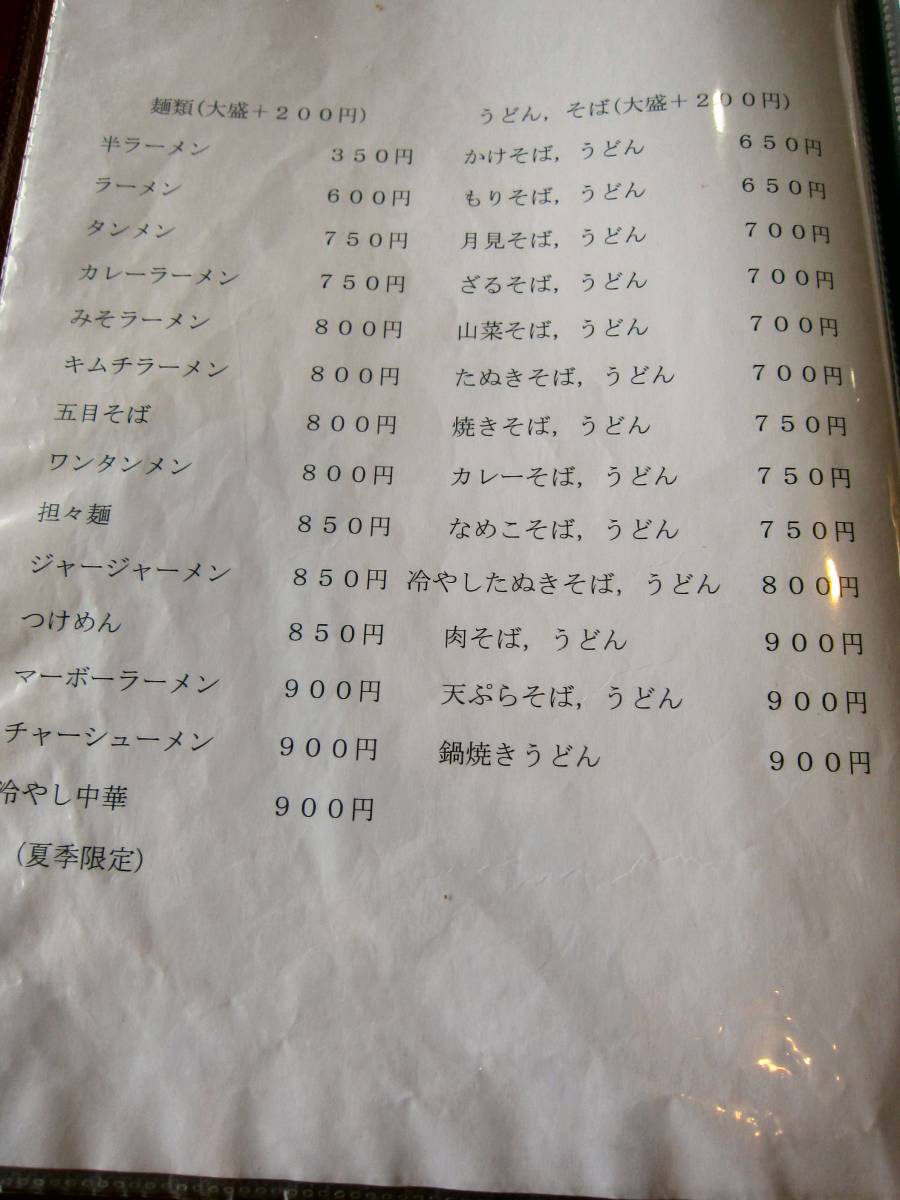 麺類(大盛+200円)
半ラーメン 350円
ラーメン 600円
タンメン 750円
カレーラーメン 750円
みそラーメン 800円
キムチラーメン 800円
五目そば 800円
ワンタンメン 800円
担々麺 850円
ジャージャーメン 850円
つけめん 850円
マーボーラーメン 900円
チャーシューメン 900円
冷やし中華 900円
(夏季限定)
うどん,そば(大盛+200円)
かけそば,うどん 650円
もりそば,うどん 650円
月見そば,うどん 700円
ざるそば,うどん 700円
山菜そば,うどん 700円
たぬきそば,うどん 700円
焼きそば,うどん 750円
カレーそば,うどん 750円
なめこそば,うどん 750円
冷やしたぬきそば,うどん 800円
肉そば,うどん 900円
天ぷらそば,うどん 900円
鍋焼きうどん 900円